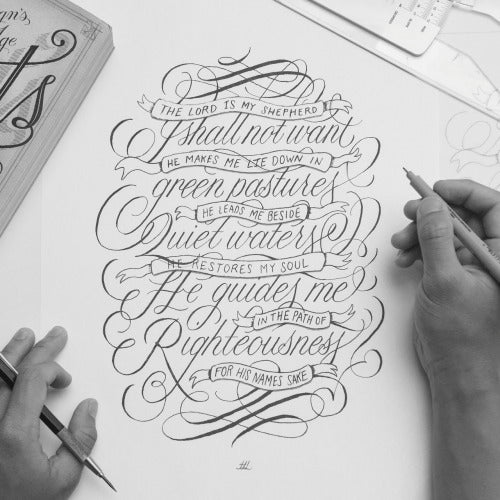 gn's,
Age
ts
THE LORD IS MY SHEPHERD
I shall not want
HE MAKES ME LIE DOWN IN
green pastures
HE LEADS ME BESIDE
Quiet waters
HE RESTORES MY SOUL
He guides me
IN THE PATH OF
Righteousness
FOR HIS NAMES SAKE